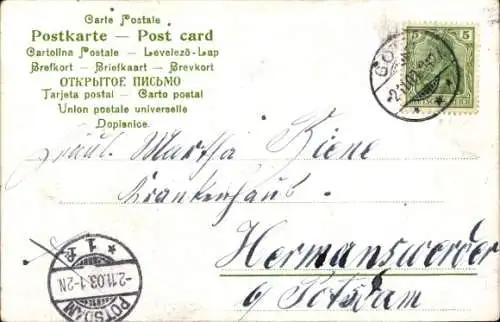 Carte Postale
Postkarte — Post card
Cartolina Postale — Levelező-Lap
Brefkort — Briefkaart — Brevkort
ОТКРЫТОЕ ПИСЬМО
Tarjeta postal — Carto postal
Union postale universelle
Dopisnice.
5 5
Fräul. Martha Kiene
Krankenhaus
Hermannswerder
b/ Potsdam
* 1 P. *
-2.11.03.1-2N
POTSDAM